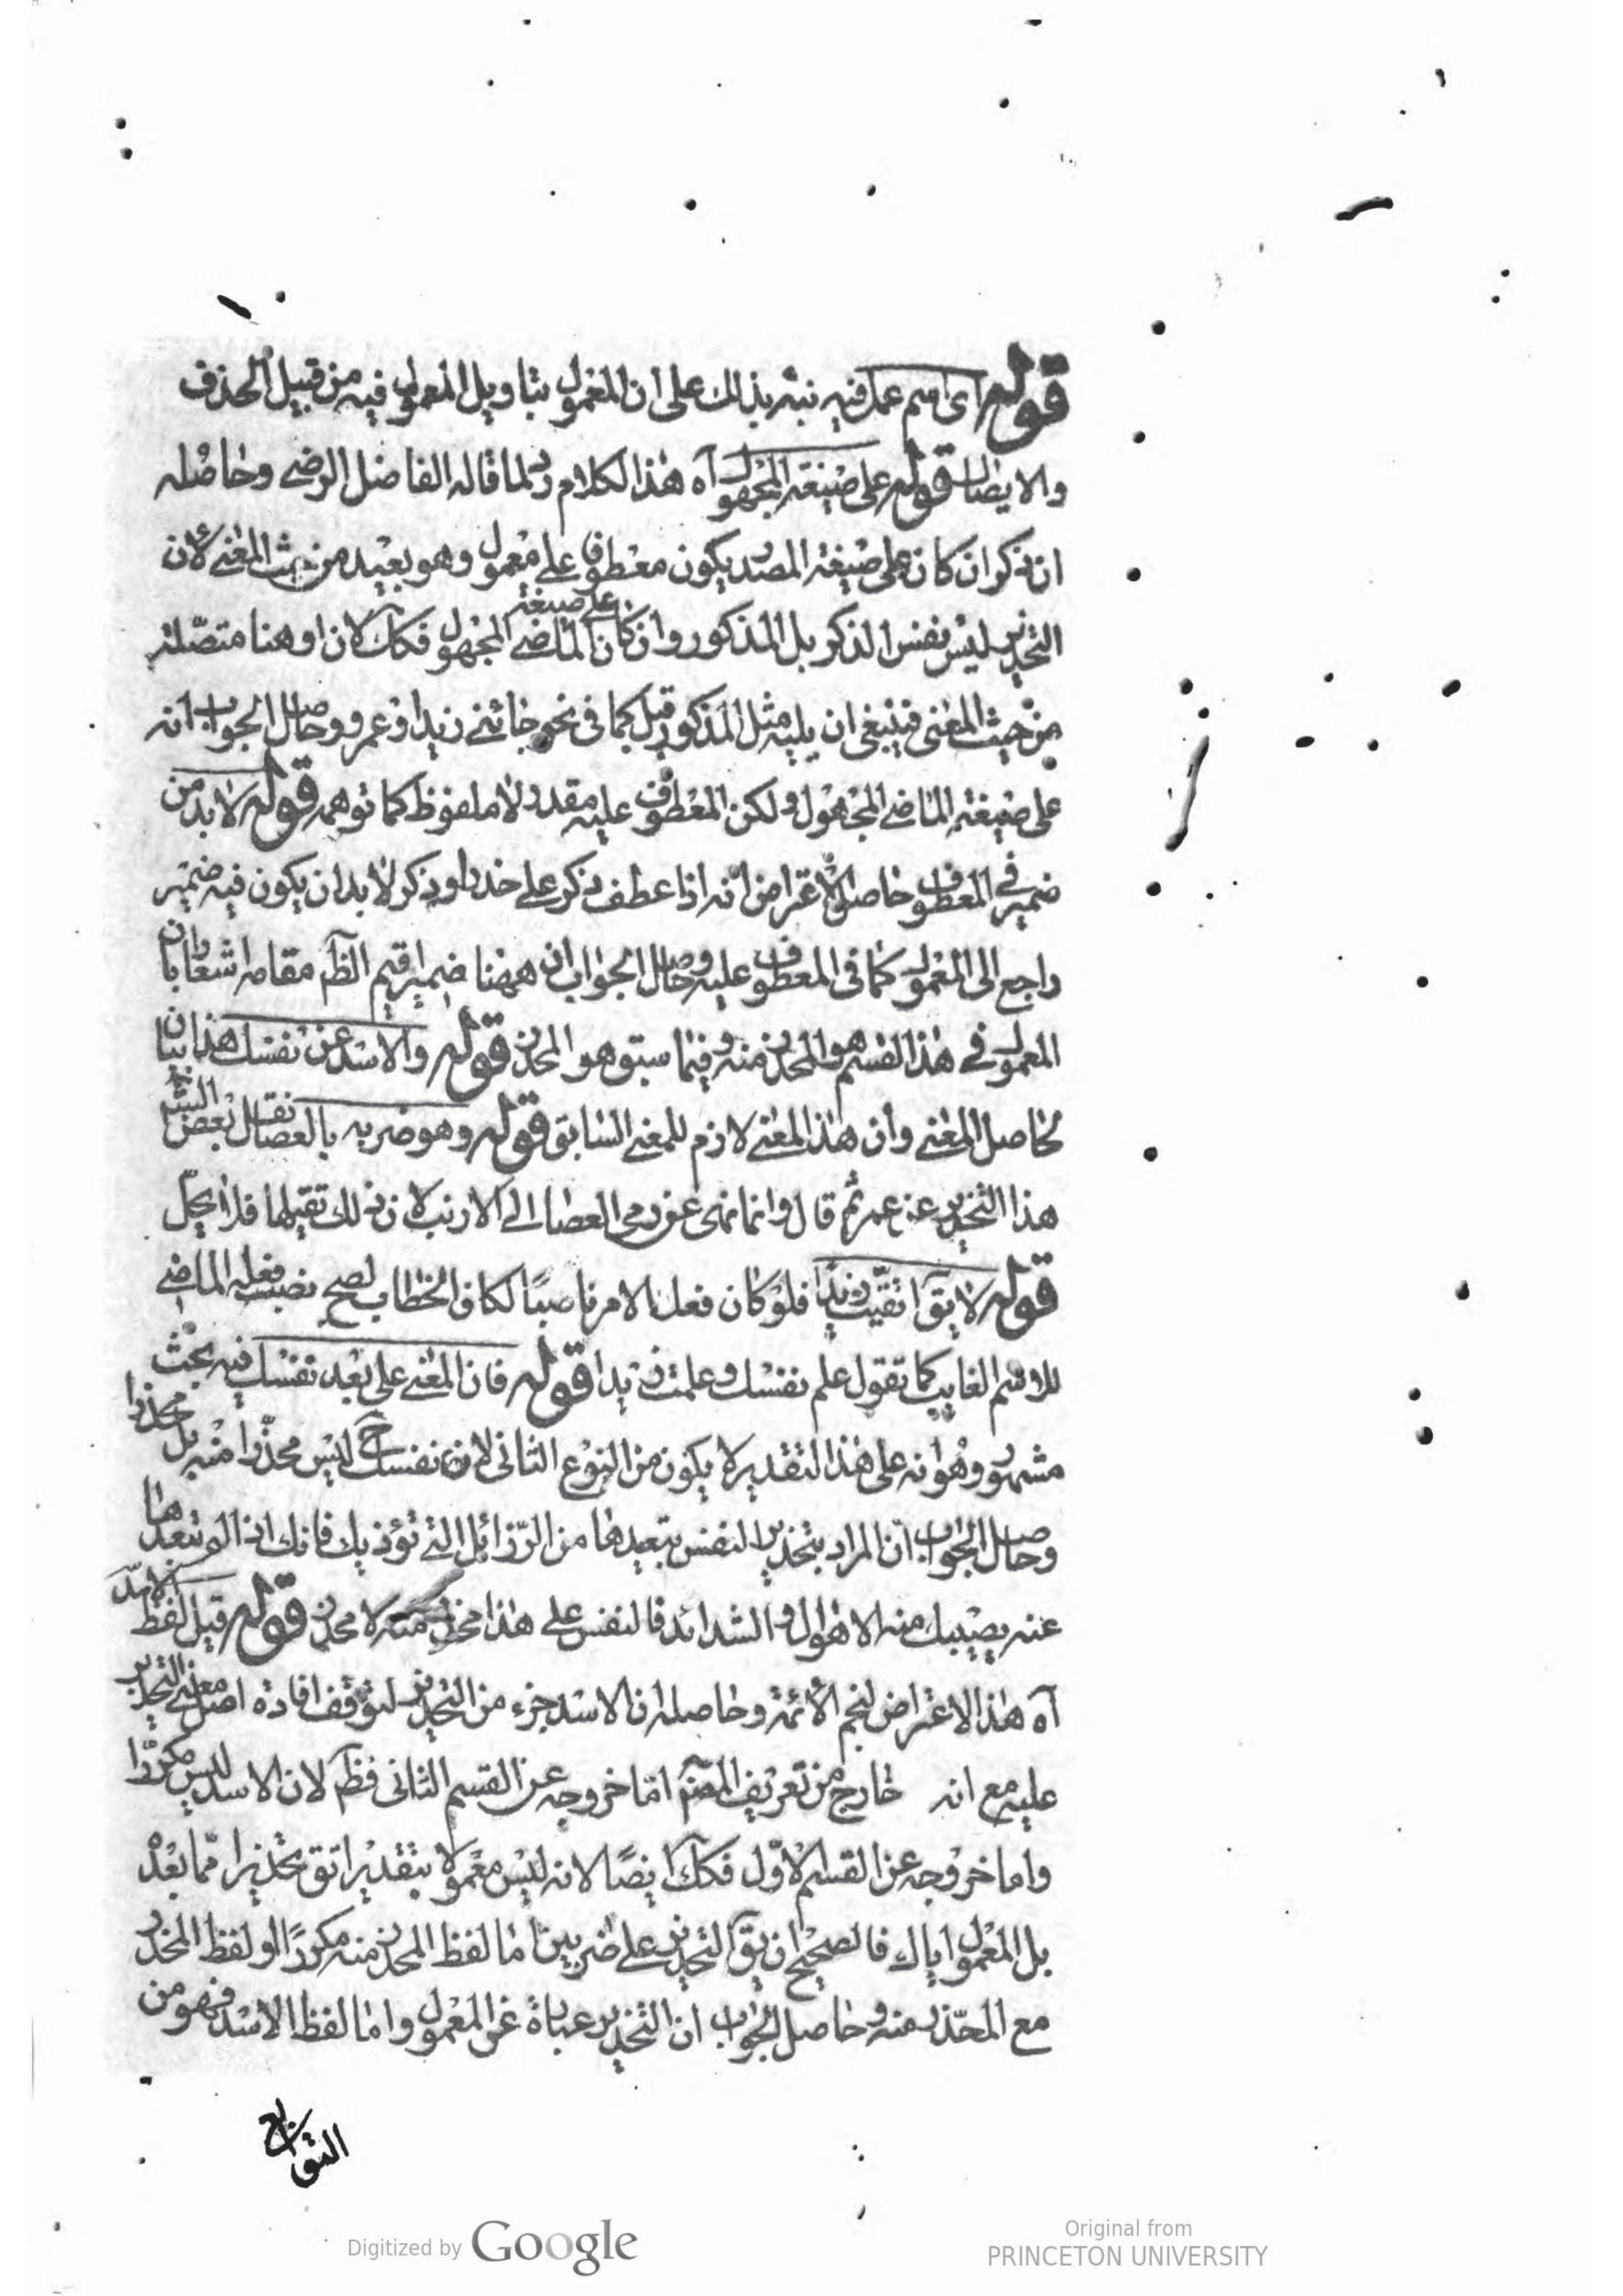 قوله اى اسم عمل فيه نبّه بذلك على ان المعمول بتاويل المعمول فيه من قبيل الحذف
والايصال قوله على صيغة المجهول آه هذا الكلام ردّ لما قاله الفاضل الرضى وحاصله
ان ذكر ان كان على صيغة المصدر يكون معطوفا على معمول وهو بعيد من حيث المعنى لان
التحذير ليس نفس الذكر بل المذكور وان كان على صيغة الماضى المجهول فكك لان او هنا متصلة
من حيث المعنى فينبغى ان يليه مثل المذكور قبل كما فى نحو جائنى زيد او عمرو وحاصل الجواب انه
على صيغة الماضى المجهول ولكن المعطوف عليه مقدر لا ملفوظ كما توهمه قوله لا بد من
ضمير فى المعطوف حاصل الاعتراض انه اذا عطف ذكر على حذر او ذكر لا بد ان يكون فيه ضمير
راجع الى المعمول كما فى المعطوف عليه وحاصل الجواب ان ههنا ضمير اقيم الظم مقامه اشعارا بان
المعمول فى هذا القسم هو المحذر منه وفيما سبق هو المحذر قوله والاسد عن نفسك هذا بيان
لحاصل المعنى وان هذا المعنى لازم للمعنى السابق قوله وهو ضربه بالعصا نقل بعض
هذا التحذير عن عمر ثم قال وانما نهى عن رمى العصا الى الارنب لان ذلك تقيلها فلا يحلّ
قوله لا يقآ اتقيت زيدا فلو كان فعل الامر ناصبًا لكاف الخطاب لصح نصب فعله الماضى
للاسم الغايب كما تقول علم نفسك وعلمت زيدا قوله فان المعنى على بعد نفسك فيه بحث
مشهور وهو انه على هذا التقدير لا يكون من النوع الثانى لان نفسك ح ليس محذرا منه بل محذرا
وحاصل الجواب ان المراد بتحذير النفس تبعيدها من الرّزائل التى تؤذيك فانك اذا لم تبعدها
عنه يصيبك منه الاهوال والشدائد فالنفس على هذا محذر منه لا محذر قوله قيل لفظ الاسد
آه هذا الاعتراض لنجم الائمة وحاصله ان الاسد جزء من التحذير لتوقف افادة اصل معنى التحذير
عليه مع انه خارج من تعريف المصنّم اما خروجه عن القسم الثانى فظم لان الاسد ليس مكررا
واما خروجه عن القسم الاوّل فكك ايضًا لانه ليس معمولا بتقدير اتق تحذيرا ممّا بعده
بل المعمول اياك فالصحيح ان يقآ التحذير على ضربين اما لفظ المحذر منه مكررًا او لفظ المحذر
مع المحذر منه وحاصل الجواب ان التحذير عبارة عن المعمول واما لفظ الاسد فهو من
التوابع
Digitized by Google
Original from
PRINCETON UNIVERSITY